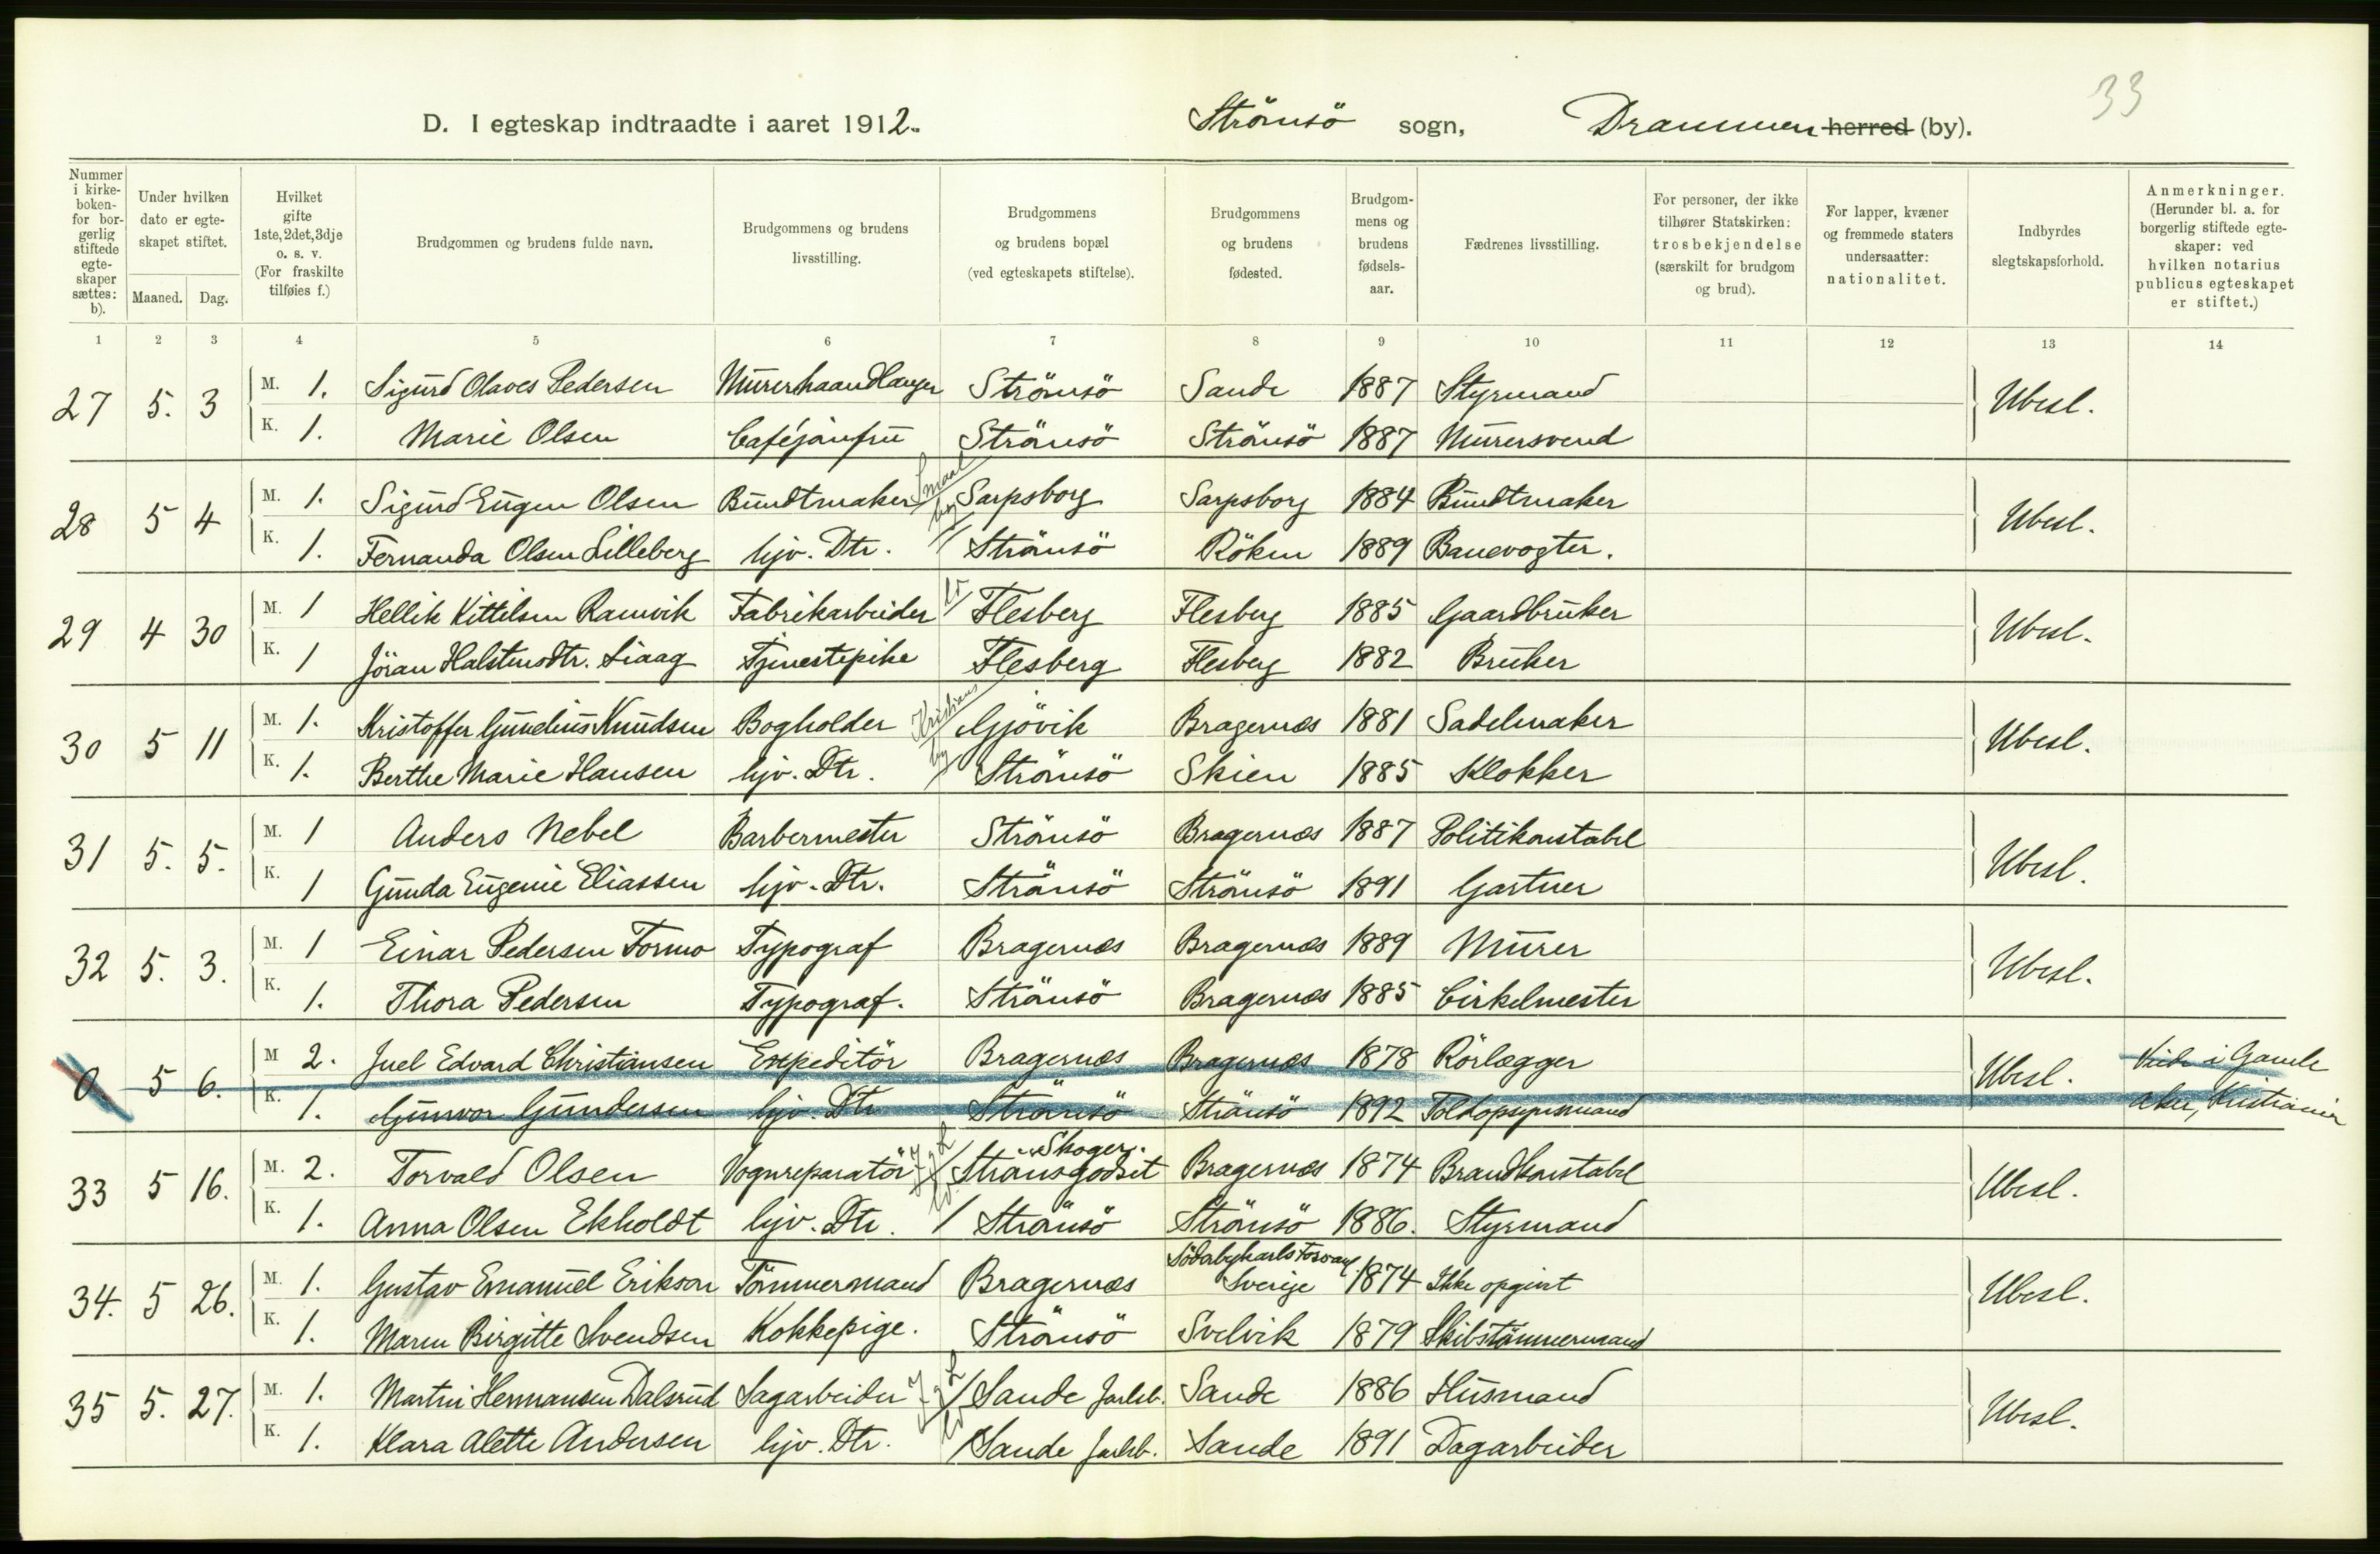 33
D. I egteskap indtraadte i aaret 1912. Strömsö sogn, Drammen herred (by).
Nummer i kirkeboken- for borgerlig stiftede egteskaper sættes: b). Under hvilken dato er egteskapet stiftet. Maaned. Dag. Hvilket gifte 1ste, 2det, 3dje o. s. v. (For fraskilte tilføies f.) Brudgommen og brudens fulde navn. Brudgommens og brudens livsstilling. Brudgommens og brudens bopæl (ved egteskapets stiftelse). Brudgommens og brudens fødested. Brudgommens og brudens fødselsaar. Fædrenes livsstilling. For personer, der ikke tilhører Statskirken: trosbekjendelse (særskilt for brudgom og brud). For lapper, kvæner og fremmede staters undersaatter: nationalitet. Indbyrdes slegtskapsforhold. Anmerkninger. (Herunder bl. a. for borgerlig stiftede egteskaper: ved hvilken notarius publicus egteskapet er stiftet.)
1 2 3 4 5 6 7 8 9 10 11 12 13 14
27 5. 3 M. 1. Sigurd Olaves Pedersen Murerhaandlanger Strömsö Sande 1887 Styrmand Ubesl.
K. 1. Marie Olsen Caféjomfru Strömsö Strömsö 1887 Murersvend
28 5 4 M. 1. Sigurd Eugen Olsen Bundtmaker Smaal by Sarpsborg Sarpsborg 1884 Bundtmaker Ubesl.
K. 1. Fernanda Olsen Lilleberg hjv. Dtr. Strömsö Röken 1889 Banevogter.
29 4 30 M. 1 Hellik Kittilsen Ramvik Fabrikarbeider Flesberg Flesberg 1885 Gaardbruker Ubesl.
K. 1 Jöran Halstensdtr. Liaag Tjenestepike Flesberg Flesberg 1882 Bruker
30 5 11 M. 1. Kristoffer Gundius Knudsen Bogholder Kristians by Gjövik Bragernæs 1881 Sadelmaker Ubesl.
K. 1. Berthe Marie Hansen hjv. Dtr. Strömsö Skien 1885 Klokker
31 5. 5. M. 1 Anders Nebel Barbermester Strömsö Bragernæs 1887 Politikonstabel Ubesl.
K. 1 Gunda Eugenie Eliassen hjv. Dtr. Strömsö Strömsö 1891 Gartner
32 5. 3. M. 1 Einar Pedersen Formo Typograf Bragernæs Bragernæs 1889 Murer Ubesl.
K. 1. Thora Pedersen Typograf. Strömsö Bragernæs 1885 Cirkelmester
0 5 6. M 2. Juel Edvard Christiansen Expeditör Bragernæs Bragernæs 1878 Rörlægger Ubesl. Viede i Gamle
K. 1. Gunvor Gundersen hjv. Dtr Strömsö Strömsö 1892 Toldopsynsmand Aker, Kristiania
Skoger.
33 5 16. M. 2. Torvald Olsen Vognreparatör Strömsgodset Bragernæs 1874 Brandkonstabel Ubesl.
K. 1. Anna Olsen Ekholdt hjv. Dtr. Strömsö Strömsö 1886. Styrmand
34. 5 26. M. 1. Gustav Emanuel Erikson Tömmermand Bragernæs Sverige 1874 Ikke opgivt Ubesl.
K. 1. Maren Birgitte Svendsen Kokkepige. Strömsö Svelvik 1879 Skibstömmermand
35 5. 27. M. 1. Martin Hermansen Dalsrud Sagarbeider Sande Jarlsb. Sande 1886 Husmand Ubesl.
K. 1. Klara Alette Andersen hjv. Dtr. Sande Jarlsb. Sande 1891 Dagarbeider